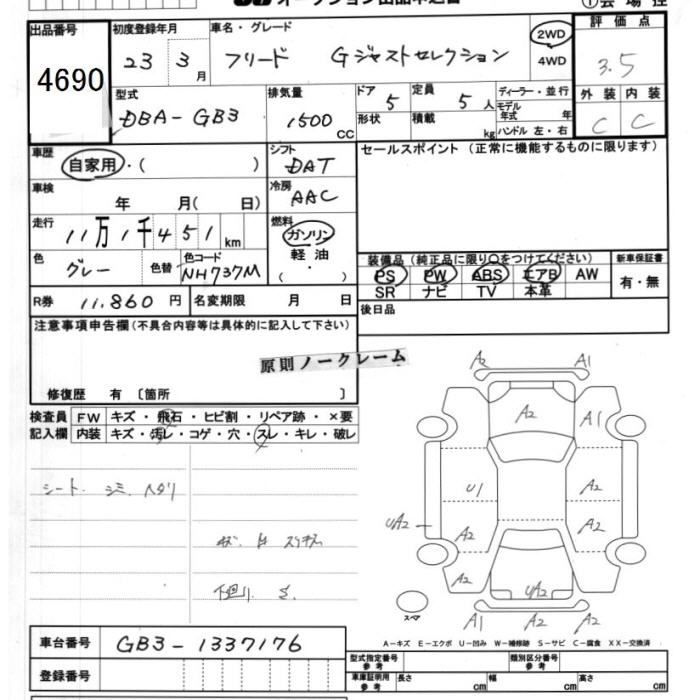 オークション出品申込書
①会場控
出品番号
4690
初度登録年月
23 3月
車名・グレード
フリード Gジャストセレクション
2WD
4WD
評価点
3.5
型式
DBA-GB3
排気量
1500 CC
ドア
5
定員
5人
形状
積載
kg
ディーラー・並行
モデル年式 年
ハンドル 左・右
外装 内装
C C
車歴
自家用・( )
シフト
DAT
セールスポイント (正常に機能するものに限ります)
車検
年 月( 日)
冷房
AAC
走行
11万1千451km
燃料
ガソリン
軽油
( ・ )
色
グレー
色替
色コード
NH737M
装備品 (純正品に限り○をつけてください)
PS PW ABS エアB AW
SR ナビ TV 本革
新車保証書
有・無
R券 11,860円
名変期限 月 日
後日品
注意事項申告欄(不具合内容等は具体的に記入して下さい)
原則ノークレーム
修復歴 有 〔箇所 〕
検査員記入欄
FW キズ・飛石・ヒビ割・リペア跡・×要
内装 キズ・汚レ・コゲ・穴・スレ・キレ・破レ
シート シミ ヘタリ
下廻り サ
A2 A1
A2 A1
U1 A2
UA2 A2 A2
A2 UA2
A1 A2 A2
スペア
A-キズ E-エクボ U-凹み W-補修跡 S-サビ C-腐食 XX-交換済
車台番号
GB3-1337176
登録番号
型式指定番号
参考
類別区分番号
参考
車庫証明用
参考
長さ cm
幅 cm
高さ cm